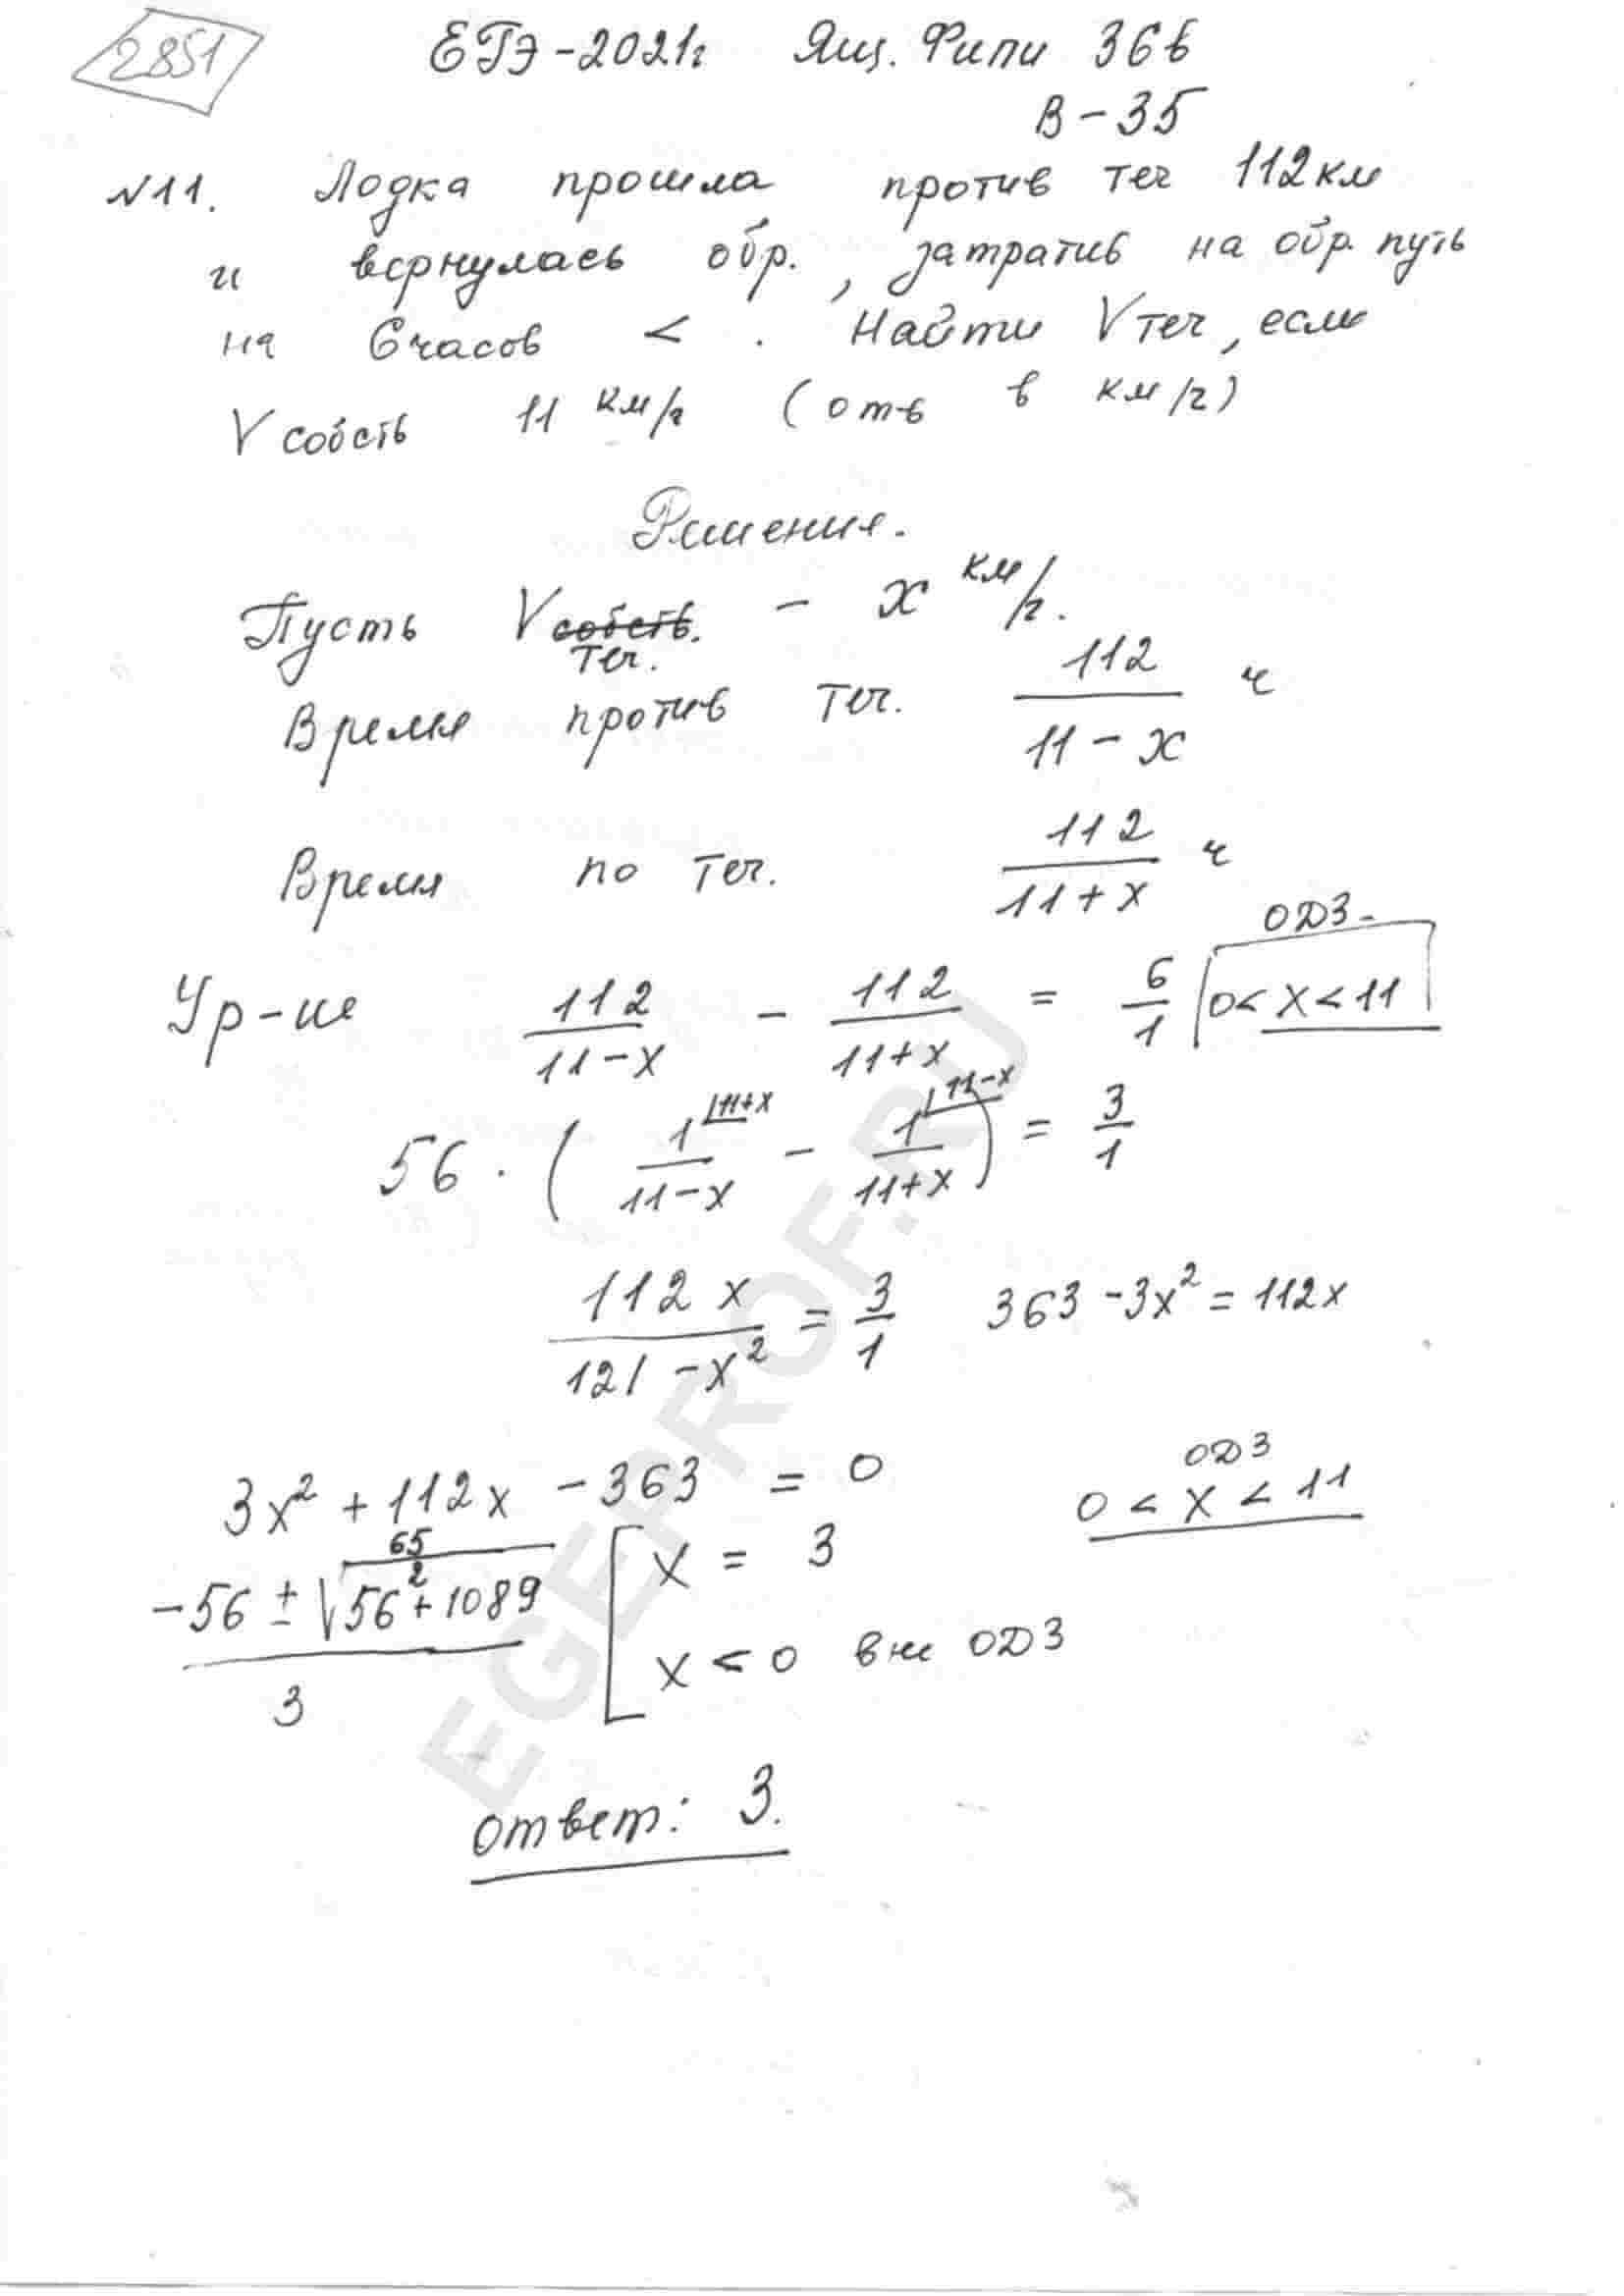 2851
ЕГЭ-2021г Ящ. Фипи 36в
В-35
№11. Лодка прошла против теч 112км
и вернулась обр., затратив на обр. путь
на 6 часов < . Найти Vтеч, если
Vсобств 11 км/ч (отв в км/ч)
Решение.
Пусть Vсобств. - x км/ч.
теч.
Время против теч. 112/(11-x) ч
Время по теч. 112/(11+x) ч
ОДЗ-
Ур-ие 112/(11-x) - 112/(11+x) = 6/1 0<x<11
56 · (1/(11-x) |11+x - 1/(11+x) |11-x) = 3/1
112x/(121-x²) = 3/1 363-3x²=112x
3x²+112x-363=0 ОДЗ
0<x<11
65
(-56±√(56²+1089))/3 [x=3
x<0 вне ОДЗ
ответ: 3.
EGEPROF.RU